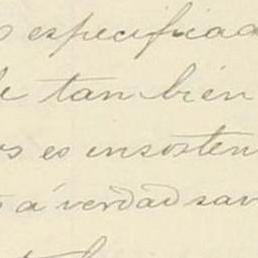 especificad
tambien
es insosten
á verdad sav